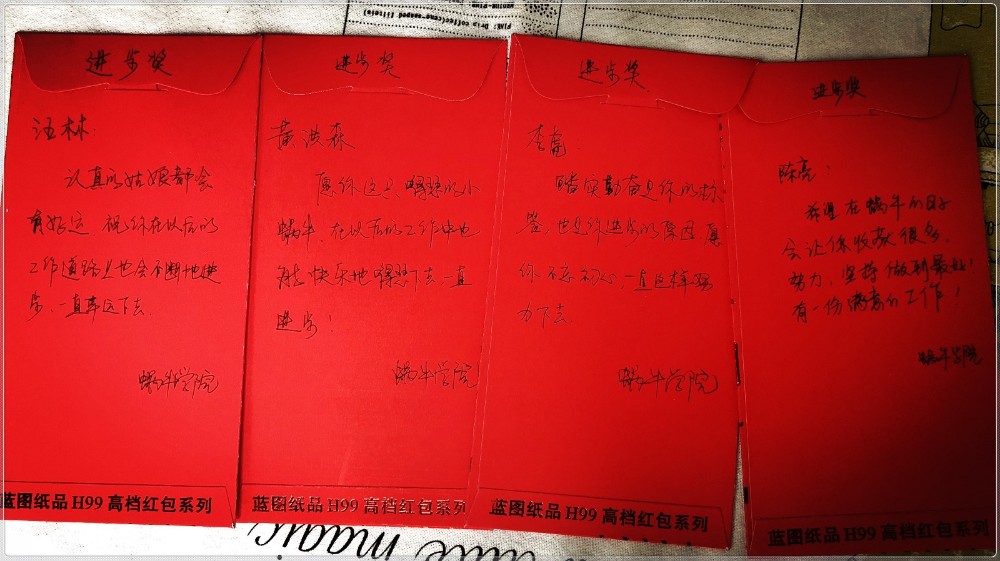 进步奖
汪林:
认真的姑娘都会
有好运 祝你在以后的
工作道路上也会不断地进
步,一直幸运下去
蜗牛学院
蓝图纸品 H99 高档红包系列
进步奖
黄洪森
愿你这只 的小
蜗牛,在以后的工作中也
能快乐地 下去,一直
进步!
蜗牛学院
蓝图纸品 H99 高档红包系列
进步奖
李富
踏实勤奋是你的标
签,也是你进步的原因 愿
你不忘初心,一直这样努
力下去
蜗牛学院
蓝图纸品 H99 高档红包系列
进步奖
陈亮:
希望在蜗牛的日子
会让你收获很多,
努力,坚持做到最好!
有一份满意的工作!
蜗牛学院
蓝图纸品 H99 高档红包系列
magic